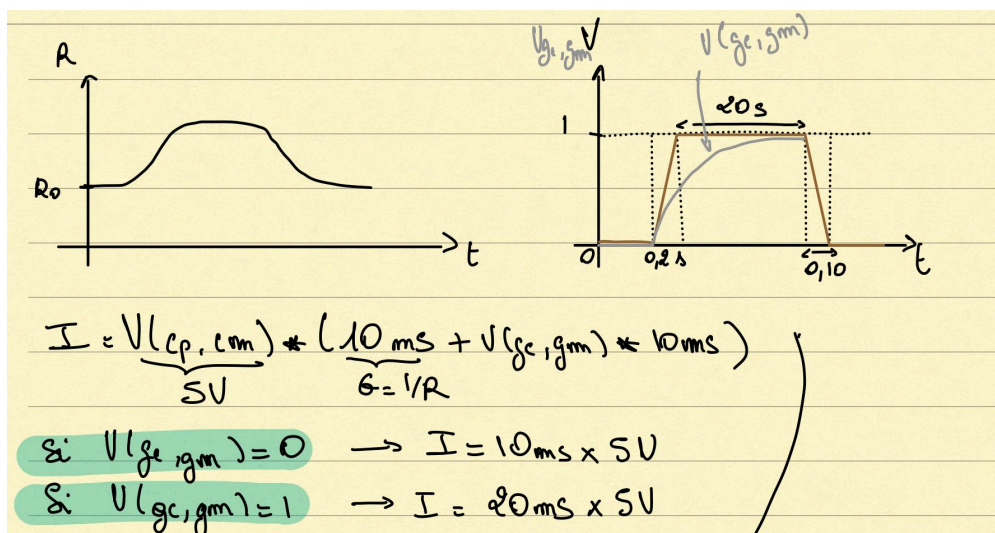 R
R0
t
Vgc,gm V
V(gc,gm)
20s
1
0
0,2 s
0,10
t
I = V(cp, cm) * (10 ms + V(gc, gm) * 10ms)
5V
G=1/R
Si V(gc,gm)=0 → I = 10ms x 5V
Si V(gc,gm)=1 → I = 20ms x 5V